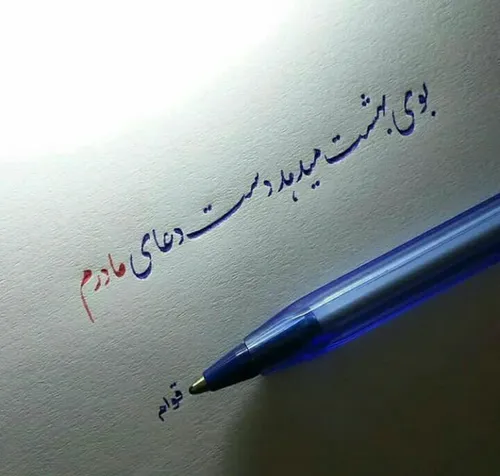 بوی بهشت میدهد دست دعای مادرم
قوام